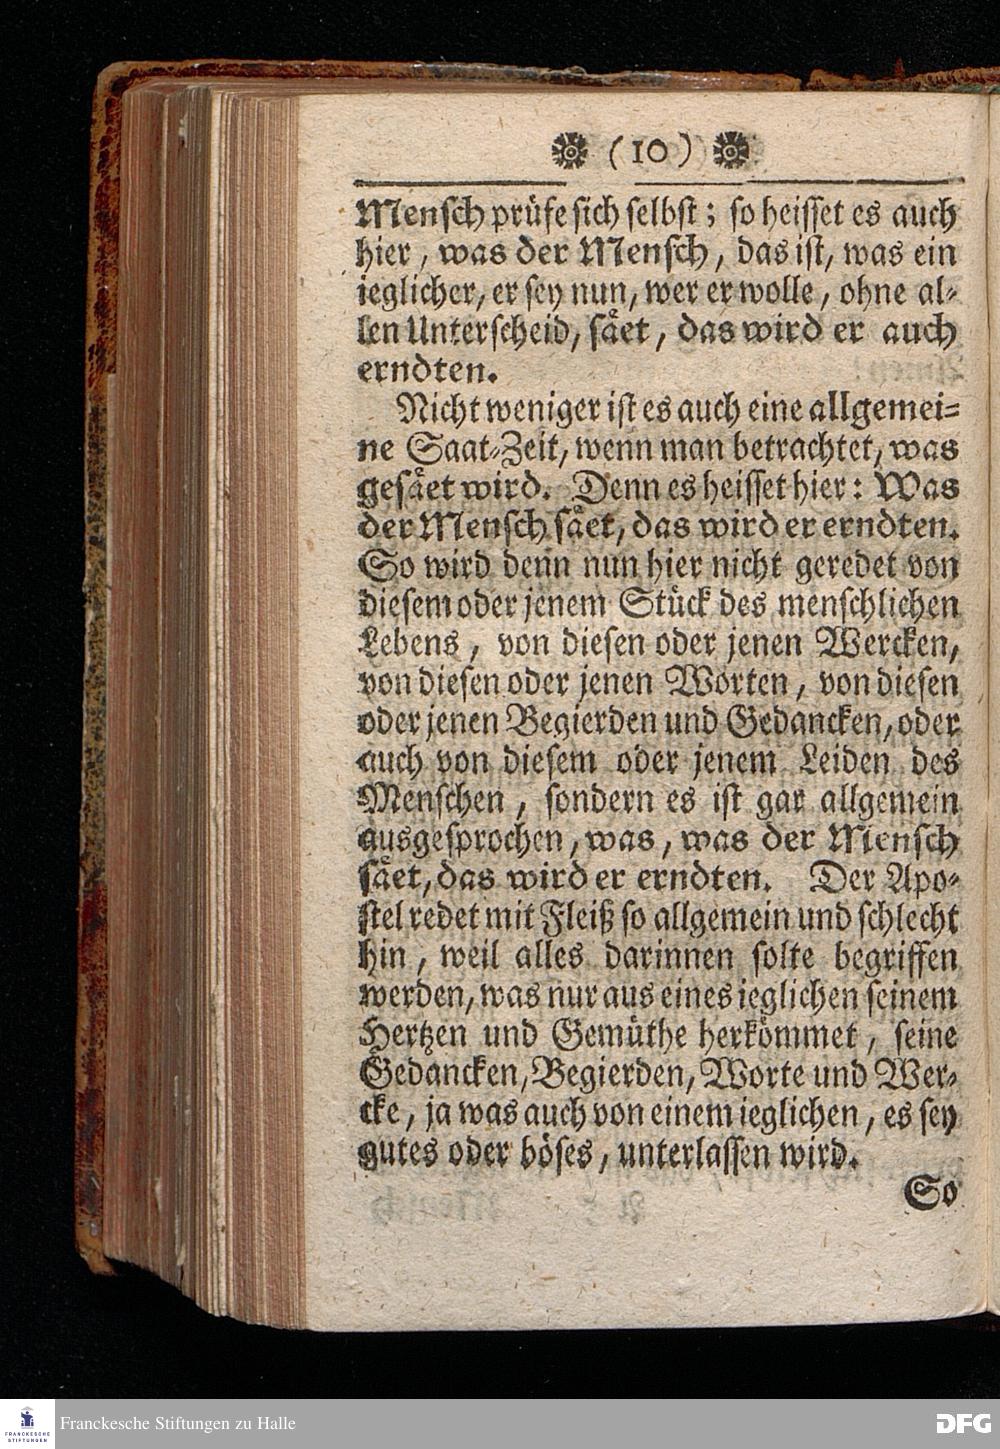 (10)
Mensch prüfe sich selbst; so heisset es auch
hier, was der Mensch, das ist, was ein
ieglicher, er sey nun, wer er wolle, ohne al-
len Unterscheid, säet, das wird er auch
erndten.
Nicht weniger ist es auch eine allgemei-
ne Saat-Zeit, wenn man betrachtet, was
gesäet wird. Denn es heisset hier: Was
der Mensch säet, das wird er erndten.
So wird denn nun hier nicht geredet von
diesem oder jenem Stück des menschlichen
Lebens, von diesen oder jenen Wercken,
von diesen oder jenen Worten, von diesen
oder jenen Begierden und Gedancken, oder
auch von diesem oder jenem Leiden des
Menschen, sondern es ist gar allgemein
ausgesprochen, was, was der Mensch
säet, das wird er erndten. Der Apo-
stel redet mit Fleiß so allgemein und schlecht
hin, weil alles darinnen solte begriffen
werden, was nur aus eines ieglichen seinem
Hertzen und Gemüthe herkömmet, seine
Gedancken, Begierden, Worte und Wer-
cke, ja was auch von einem ieglichen, es sey
gutes oder böses, unterlassen wird.
So
FRANCKESCHE
STIFTUNGEN
Franckesche Stiftungen zu Halle
DFG